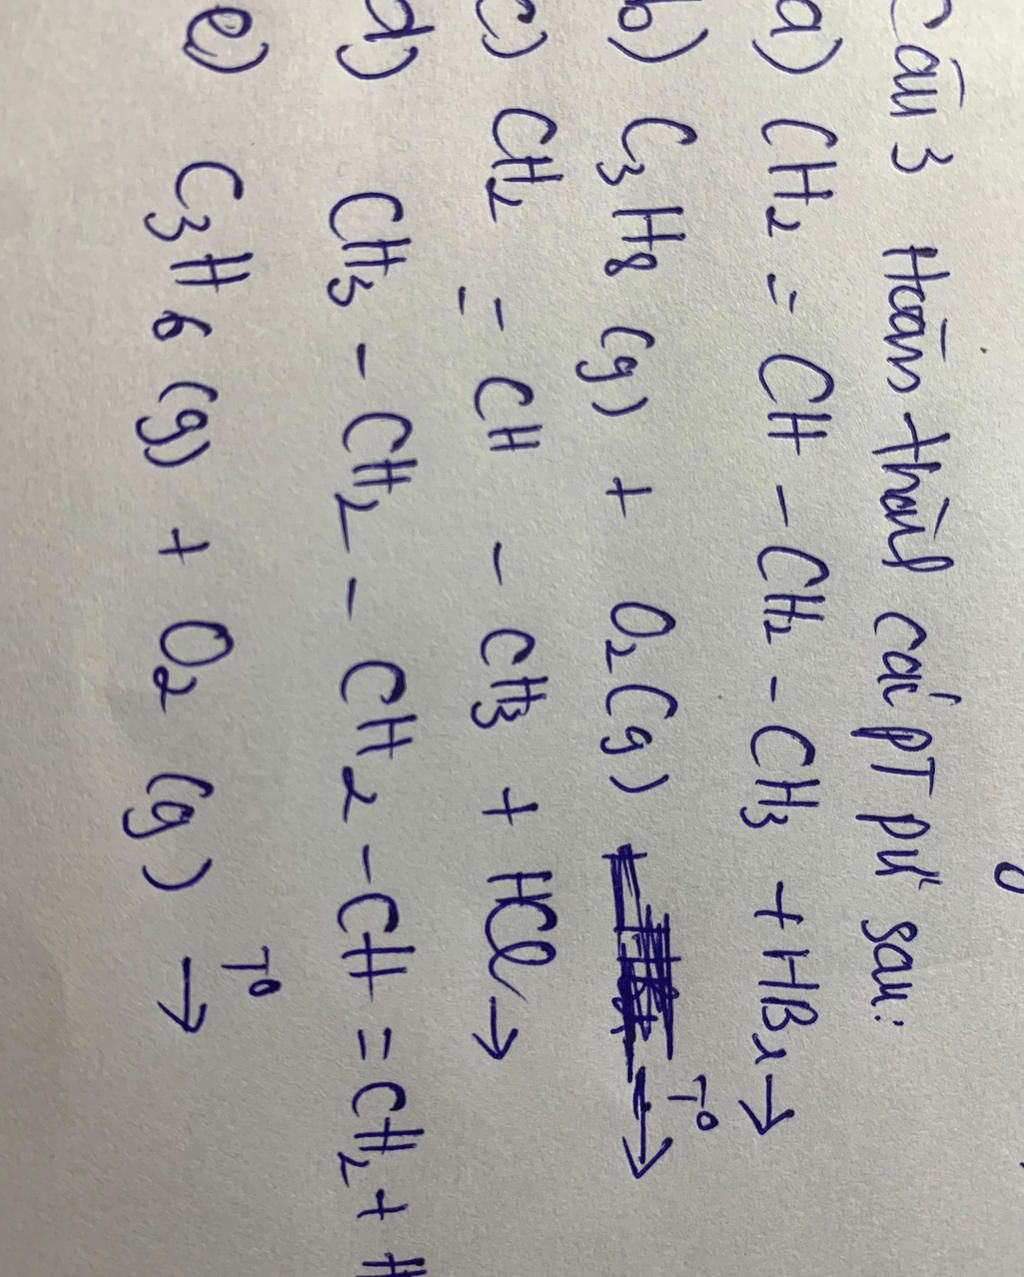 Câu 3 Hoàn thành các PT pư sau:
a) CH2 = CH - CH2 - CH3 + HBr →
b) C3H8 (g) + O2 (g) T° →
c) CH2 = CH - CH3 + HCl →
d) CH3 - CH2 - CH2 - CH = CH2 + H
e) C3H6 (g) + O2 (g) T° →